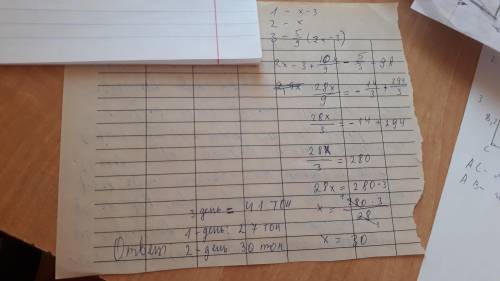 1 - x-3
2 - x
3 - 5/9 (2x-3)
2x - 3 + 10/9 - 5/3 = 98
28x/9 = - 14/3 + 294/3
28x/3 = -14 + 294
28x/3 = 280
28x = 280·3
x = 280·3/28
x = 30
3 день = 41 тон
1 - день: 27 тон
Ответ 2 - день 30 тон